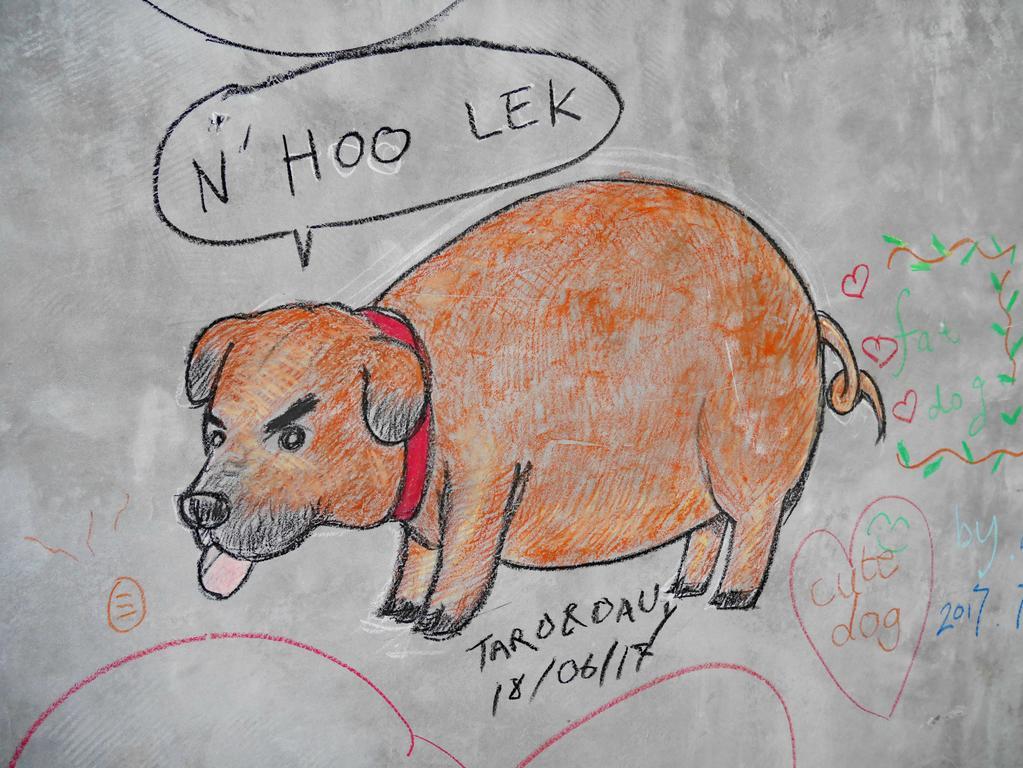 N' HOO LEK
fat
dog
cute
dog
by
2017.
TARO&DAU,
18/06/17